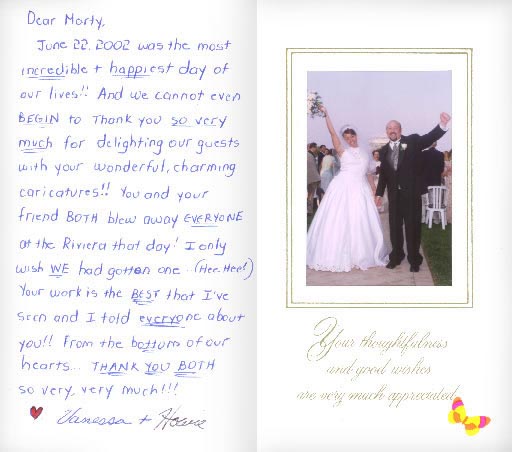 Dear Marty,
June 22, 2002 was the most
incredible + happiest day of
our lives!! And we cannot even
BEGIN to thank you so very
much for delighting our guests
with your wonderful, charming
caricatures!! You and your
friend BOTH blew away EVERYONE
at the Riviera that day! I only
wish WE had gotten one...(Hee-Hee!)
Your work is the BEST that I've
seen and I told everyone about
you!! From the bottom of our
hearts... THANK YOU BOTH
so very, very much!!!
Vanessa + Howie
Your thoughtfulness
and good wishes
are very much appreciated